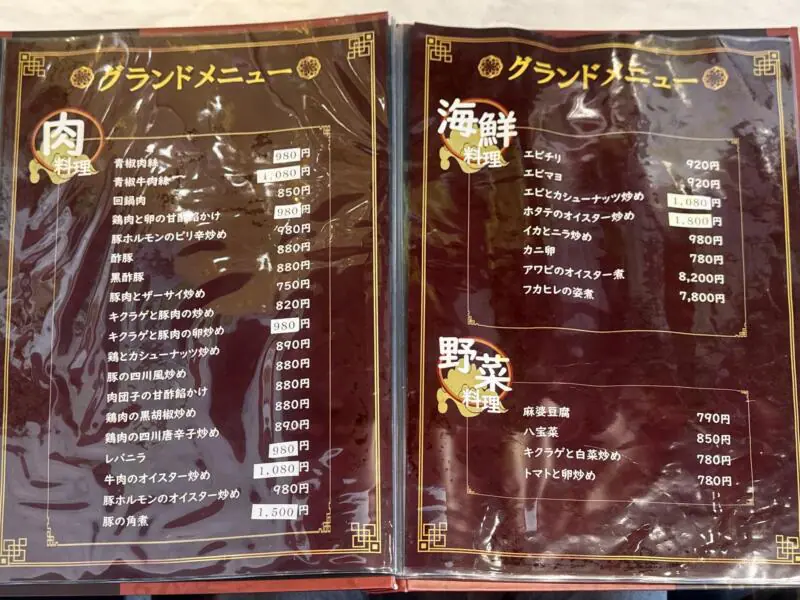 グランドメニュー
肉料理
青椒肉絲 980円
青椒牛肉絲 1,080円
回鍋肉 850円
鶏肉と卵の甘酢餡かけ 980円
豚ホルモンのピリ辛炒め 980円
酢豚 880円
黒酢豚 880円
豚肉とザーサイ炒め 750円
キクラゲと豚肉の炒め 820円
キクラゲと豚肉の卵炒め 980円
鶏とカシューナッツ炒め 890円
豚の四川風炒め 880円
肉団子の甘酢餡かけ 880円
鶏肉の黒胡椒炒め 880円
鶏肉の四川唐辛子炒め 890円
レバニラ 980円
牛肉のオイスター炒め 1,080円
豚ホルモンのオイスター炒め 980円
豚の角煮 1,500円
グランドメニュー
海鮮料理
エビチリ 920円
エビマヨ 920円
エビとカシューナッツ炒め 1,080円
ホタテのオイスター炒め 1,800円
イカとニラ炒め 980円
カニ卵 780円
アワビのオイスター煮 8,200円
フカヒレの姿煮 7,800円
野菜料理
麻婆豆腐 790円
八宝菜 850円
キクラゲと白菜炒め 780円
トマトと卵炒め 780円